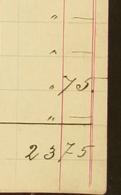 " —
" —
" 75.
" —
2375